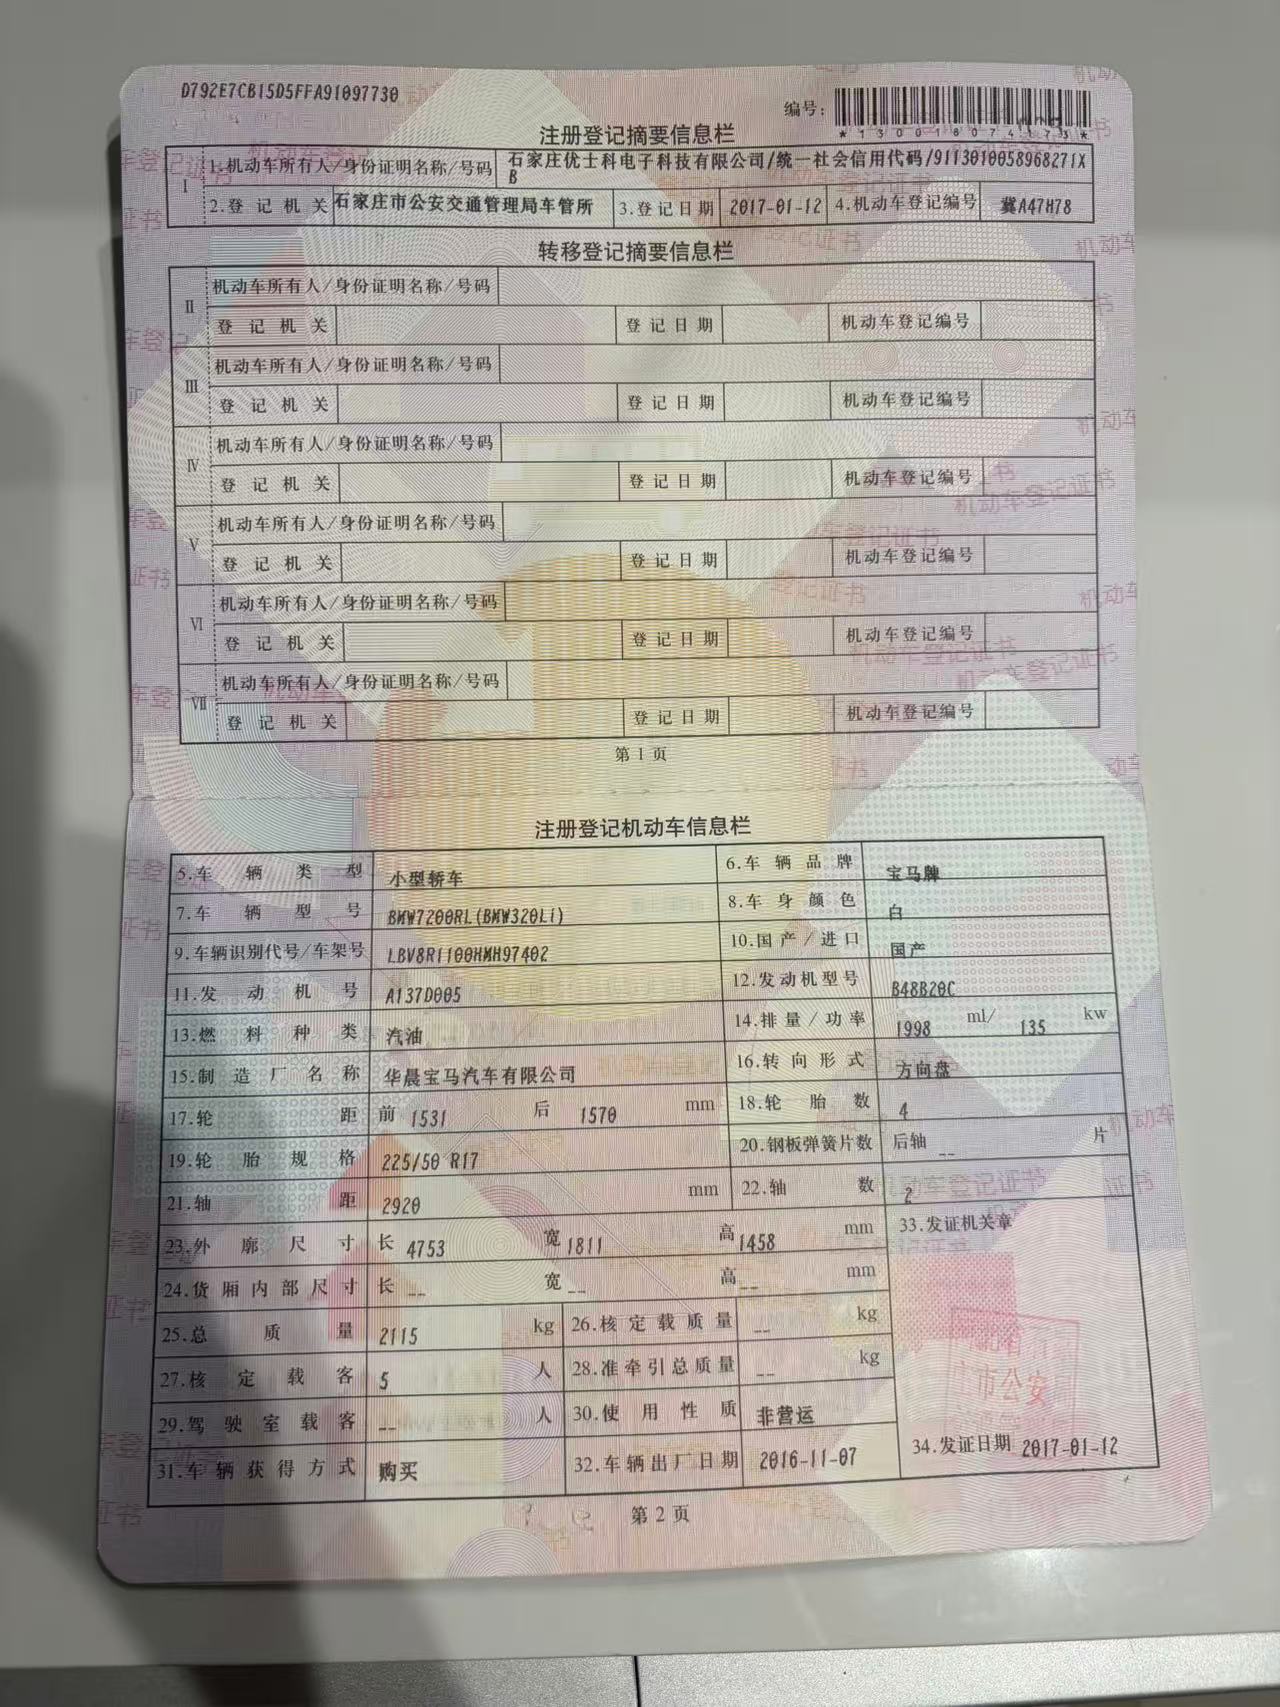 D792E7CB15D5FFA91097730
编号:
*130018074173*
注册登记摘要信息栏
I 1.机动车所有人/身份证明名称/号码 石家庄优士科电子科技有限公司/统一社会信用代码/9113010058968271XB
2.登记机关 石家庄市公安交通管理局车管所 3.登记日期 2017-01-12 4.机动车登记编号 冀A47H78
转移登记摘要信息栏
II 机动车所有人/身份证明名称/号码
登记机关 登记日期 机动车登记编号
III 机动车所有人/身份证明名称/号码
登记机关 登记日期 机动车登记编号
IV 机动车所有人/身份证明名称/号码
登记机关 登记日期 机动车登记编号
V 机动车所有人/身份证明名称/号码
登记机关 登记日期 机动车登记编号
VI 机动车所有人/身份证明名称/号码
登记机关 登记日期 机动车登记编号
VII 机动车所有人/身份证明名称/号码
登记机关 登记日期 机动车登记编号
第1页
注册登记机动车信息栏
5.车辆类型 小型轿车 6.车辆品牌 宝马牌
7.车辆型号 BMW7200RL(BMW320Li) 8.车身颜色 白
9.车辆识别代号/车架号 LBV8R1100HMH97402 10.国产/进口 国产
11.发动机号 A137D005 12.发动机型号 B48B20C
13.燃料种类 汽油 14.排量/功率 1998 ml/ 135 kw
15.制造厂名称 华晨宝马汽车有限公司 16.转向形式 方向盘
17.轮距 前 1531 后 1570 mm 18.轮胎数 4
19.轮胎规格 225/50 R17 20.钢板弹簧片数 后轴 -- 片
21.轴距 2920 mm 22.轴数 2
23.外廓尺寸 长 4753 宽 1811 高 1458 mm 33.发证机关章
24.货厢内部尺寸 长 -- 宽 -- 高 -- mm
25.总质量 2115 kg 26.核定载质量 -- kg
27.核定载客 5 人 28.准牵引总质量 -- kg
市公安
29.驾驶室载客 -- 人 30.使用性质 非营运
31.车辆获得方式 购买 32.车辆出厂日期 2016-11-07 34.发证日期 2017-01-12
第2页